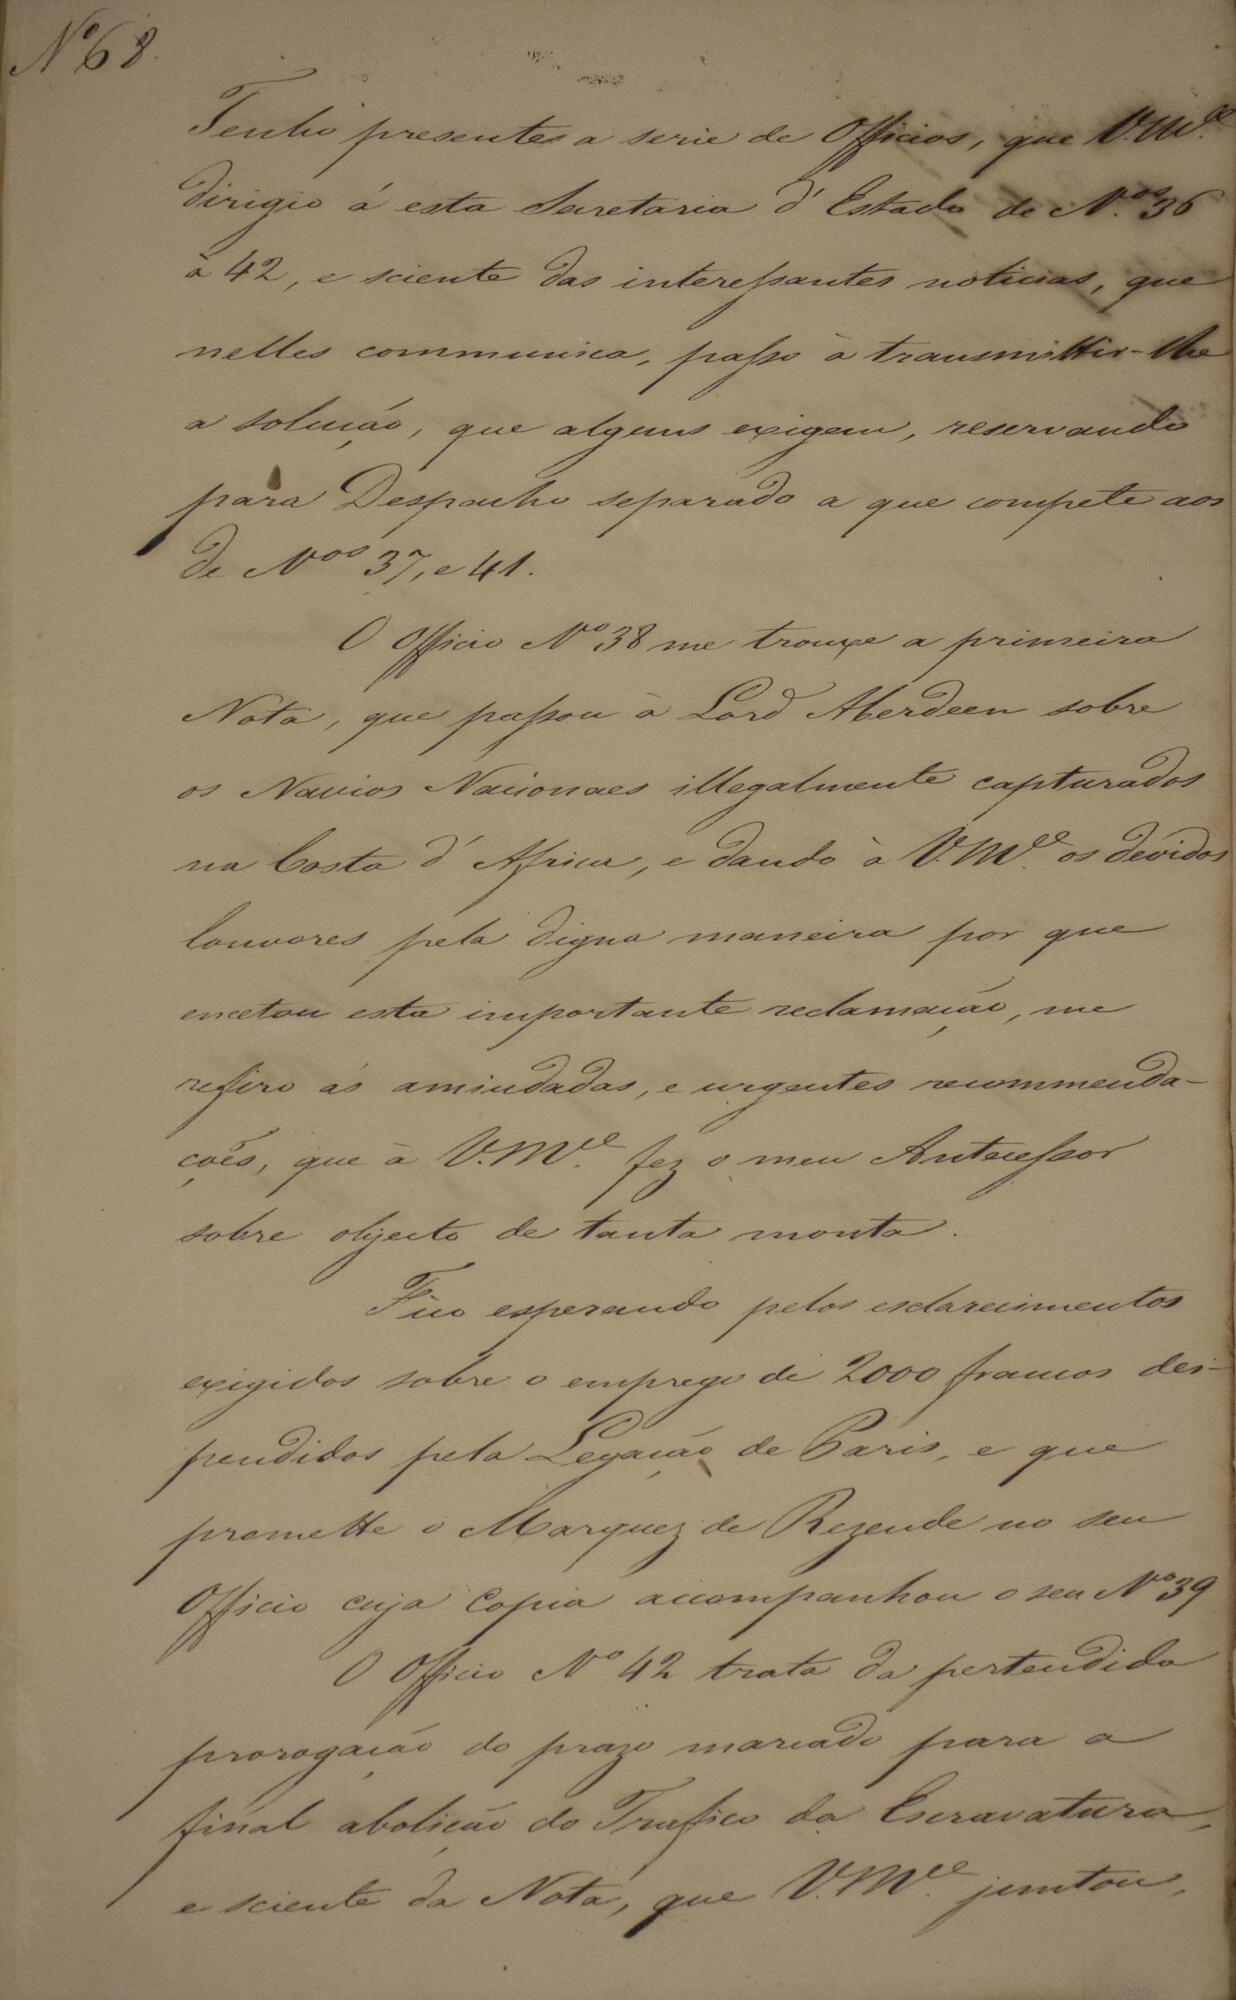 Nº 68.
Tenho presentes a serie de Officios, que V. Mce.
dirigio á esta Secretaria d'Estado de N.os 36
à 42, e sciente das interessantes noticias, que
nelles communica, passo à transmittir-lhe
a solução, que alguns exigem, reservando
para Despacho separado a que compete aos
de Nos 37, e 41.
O Officio Nº 38 me trouxe a primeira
Nota, que passou à Lord Aberdeen sobre
os Navios Nacionaes illegalmente capturados
na Costa d'Africa, e dando à V. Mce. os devidos
louvores pela digna maneira por que
encetou esta importante reclamação, me
refiro ás amiudadas, e urgentes recommenda-
ções, que à V. Mce. fez o meu Antecessor
sobre objecto de tanta monta.
Fico esperando pelos esclarecimentos
exigidos sobre o emprego de 2000 francos des-
pendidos pela Legação de Paris, e que
promette o Marquez de Rezende no seu
Officio cuja Copia accompanhou o seu Nº 39
O Officio Nº 42 trata da pertendida
prorogação do prazo marcado para a
final abolição do Trafico da Escravatura,
e sciente da Nota, que V. Mce. juntou,